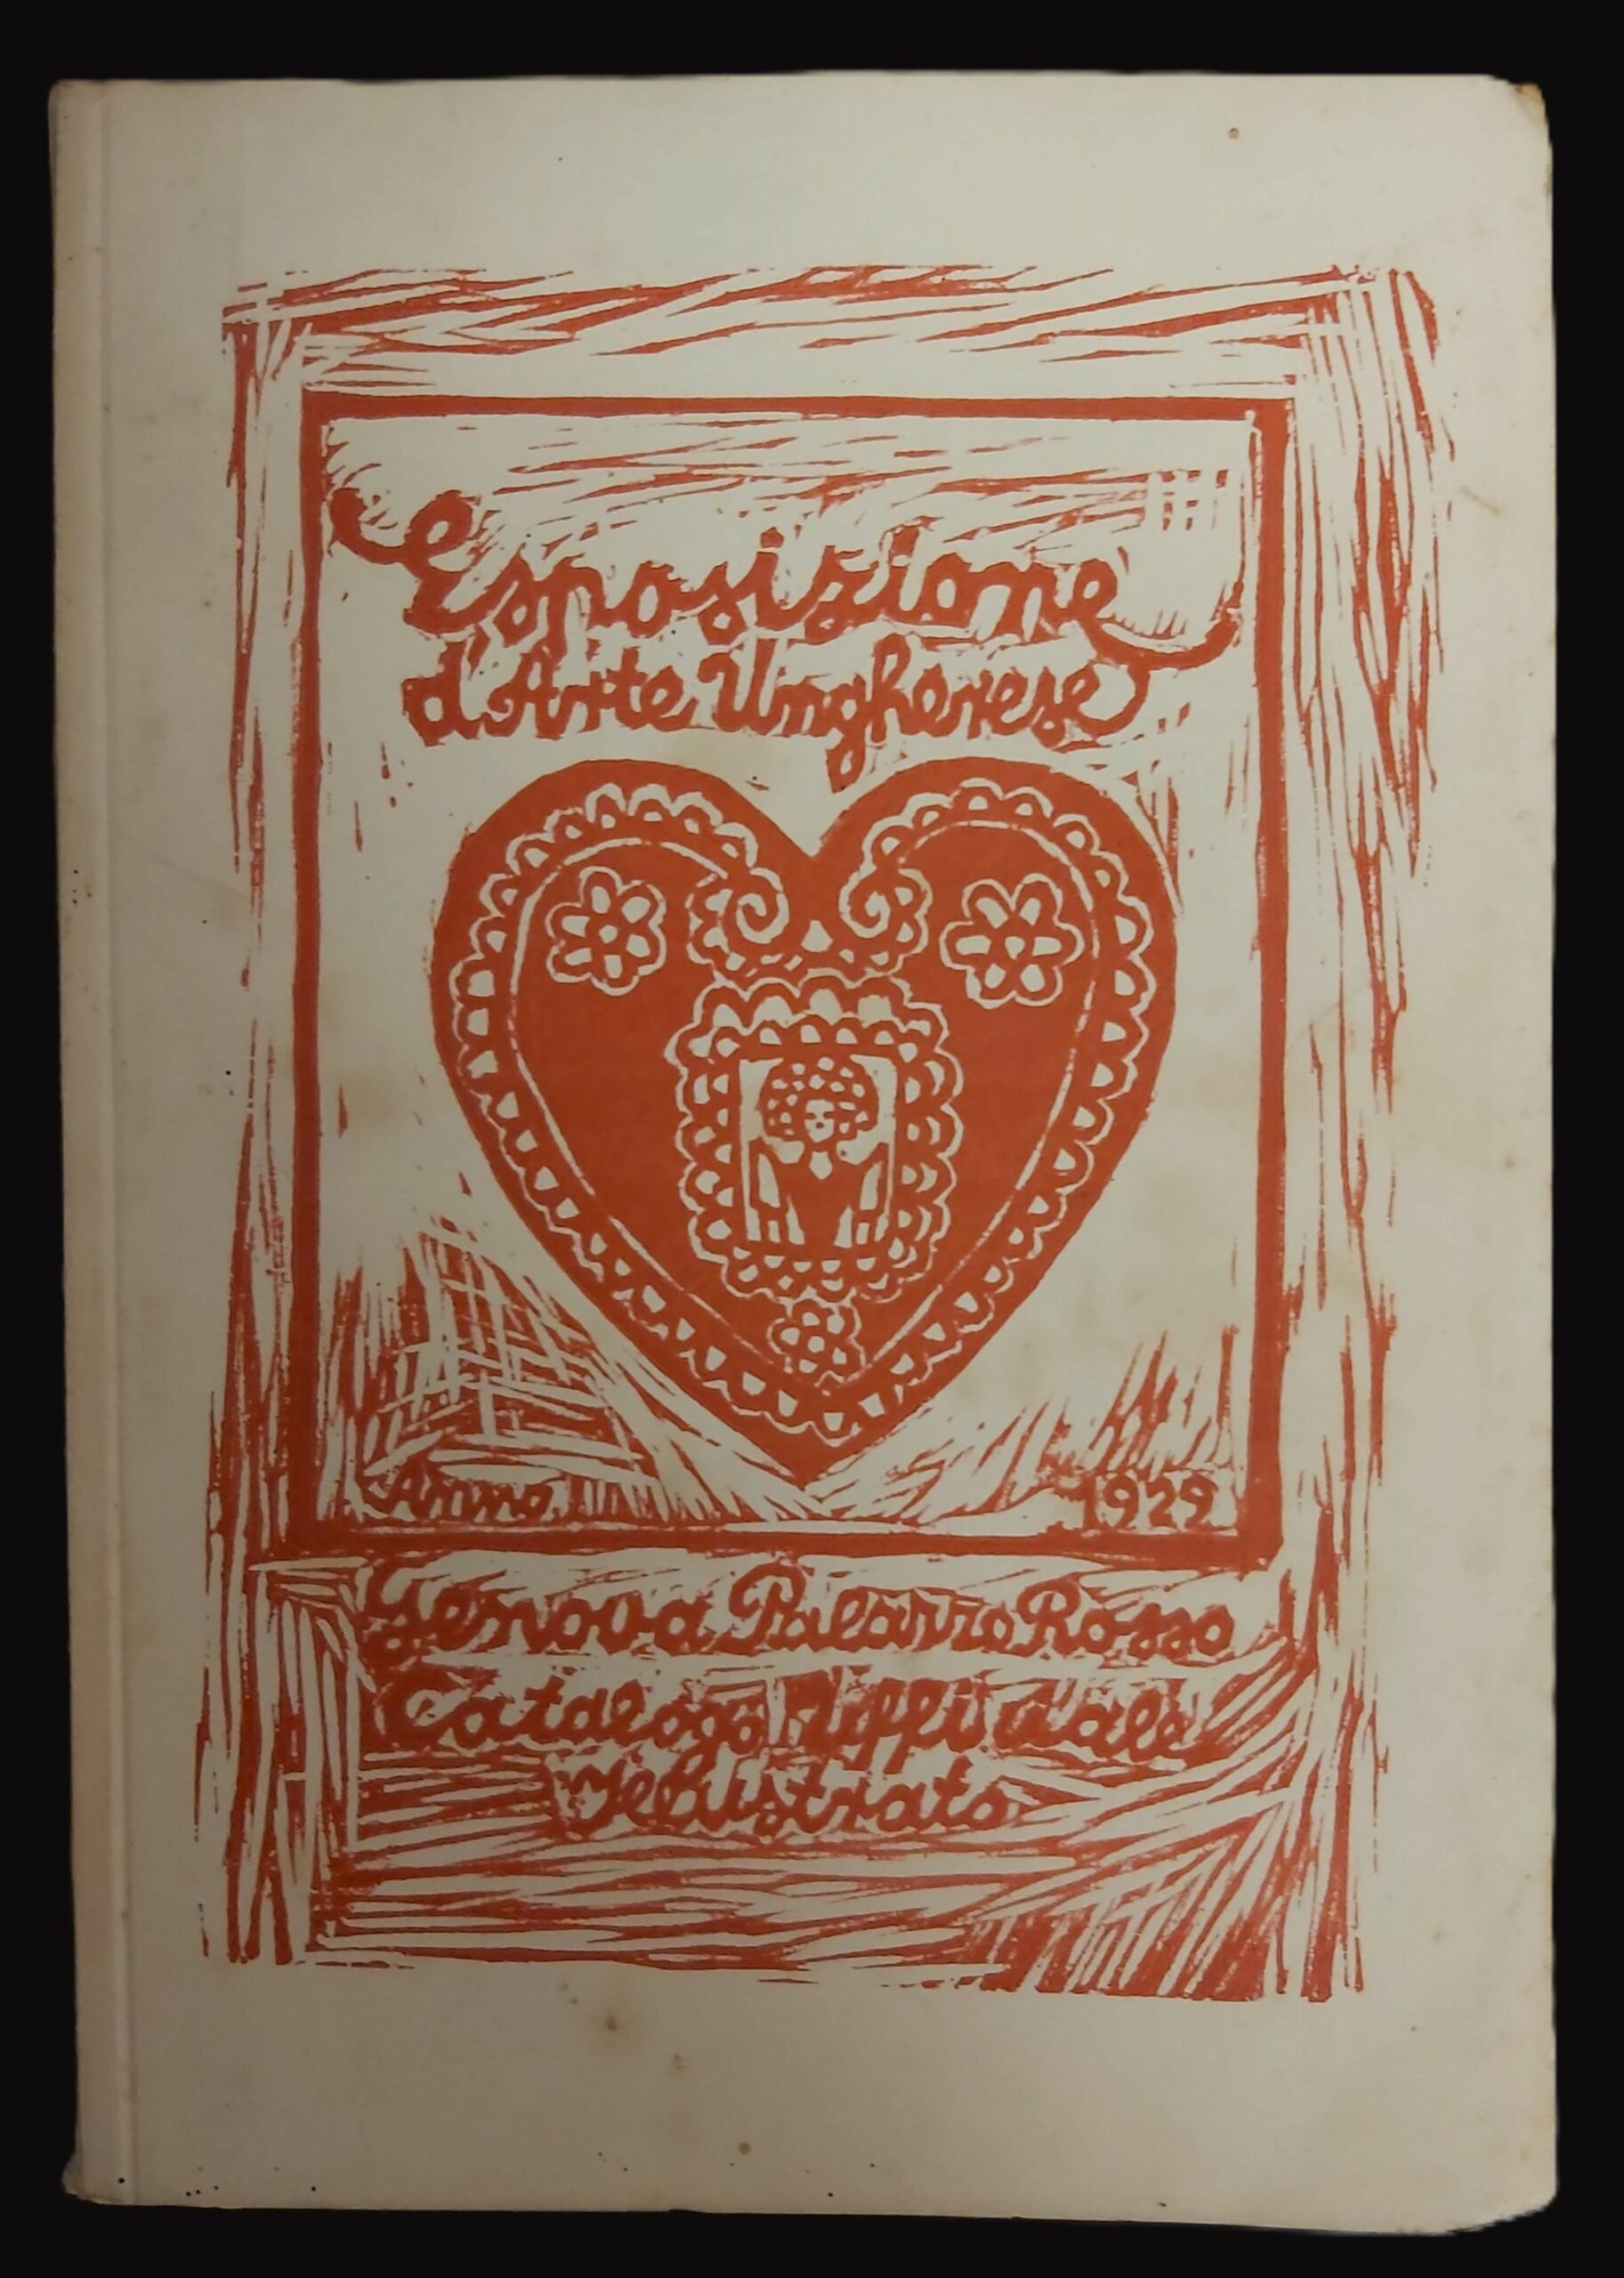 Esposizione
d'Arte Ungherese
Anno 1929
Genova Palazzo Rosso
Catalogo Ufficiale
Illustrato